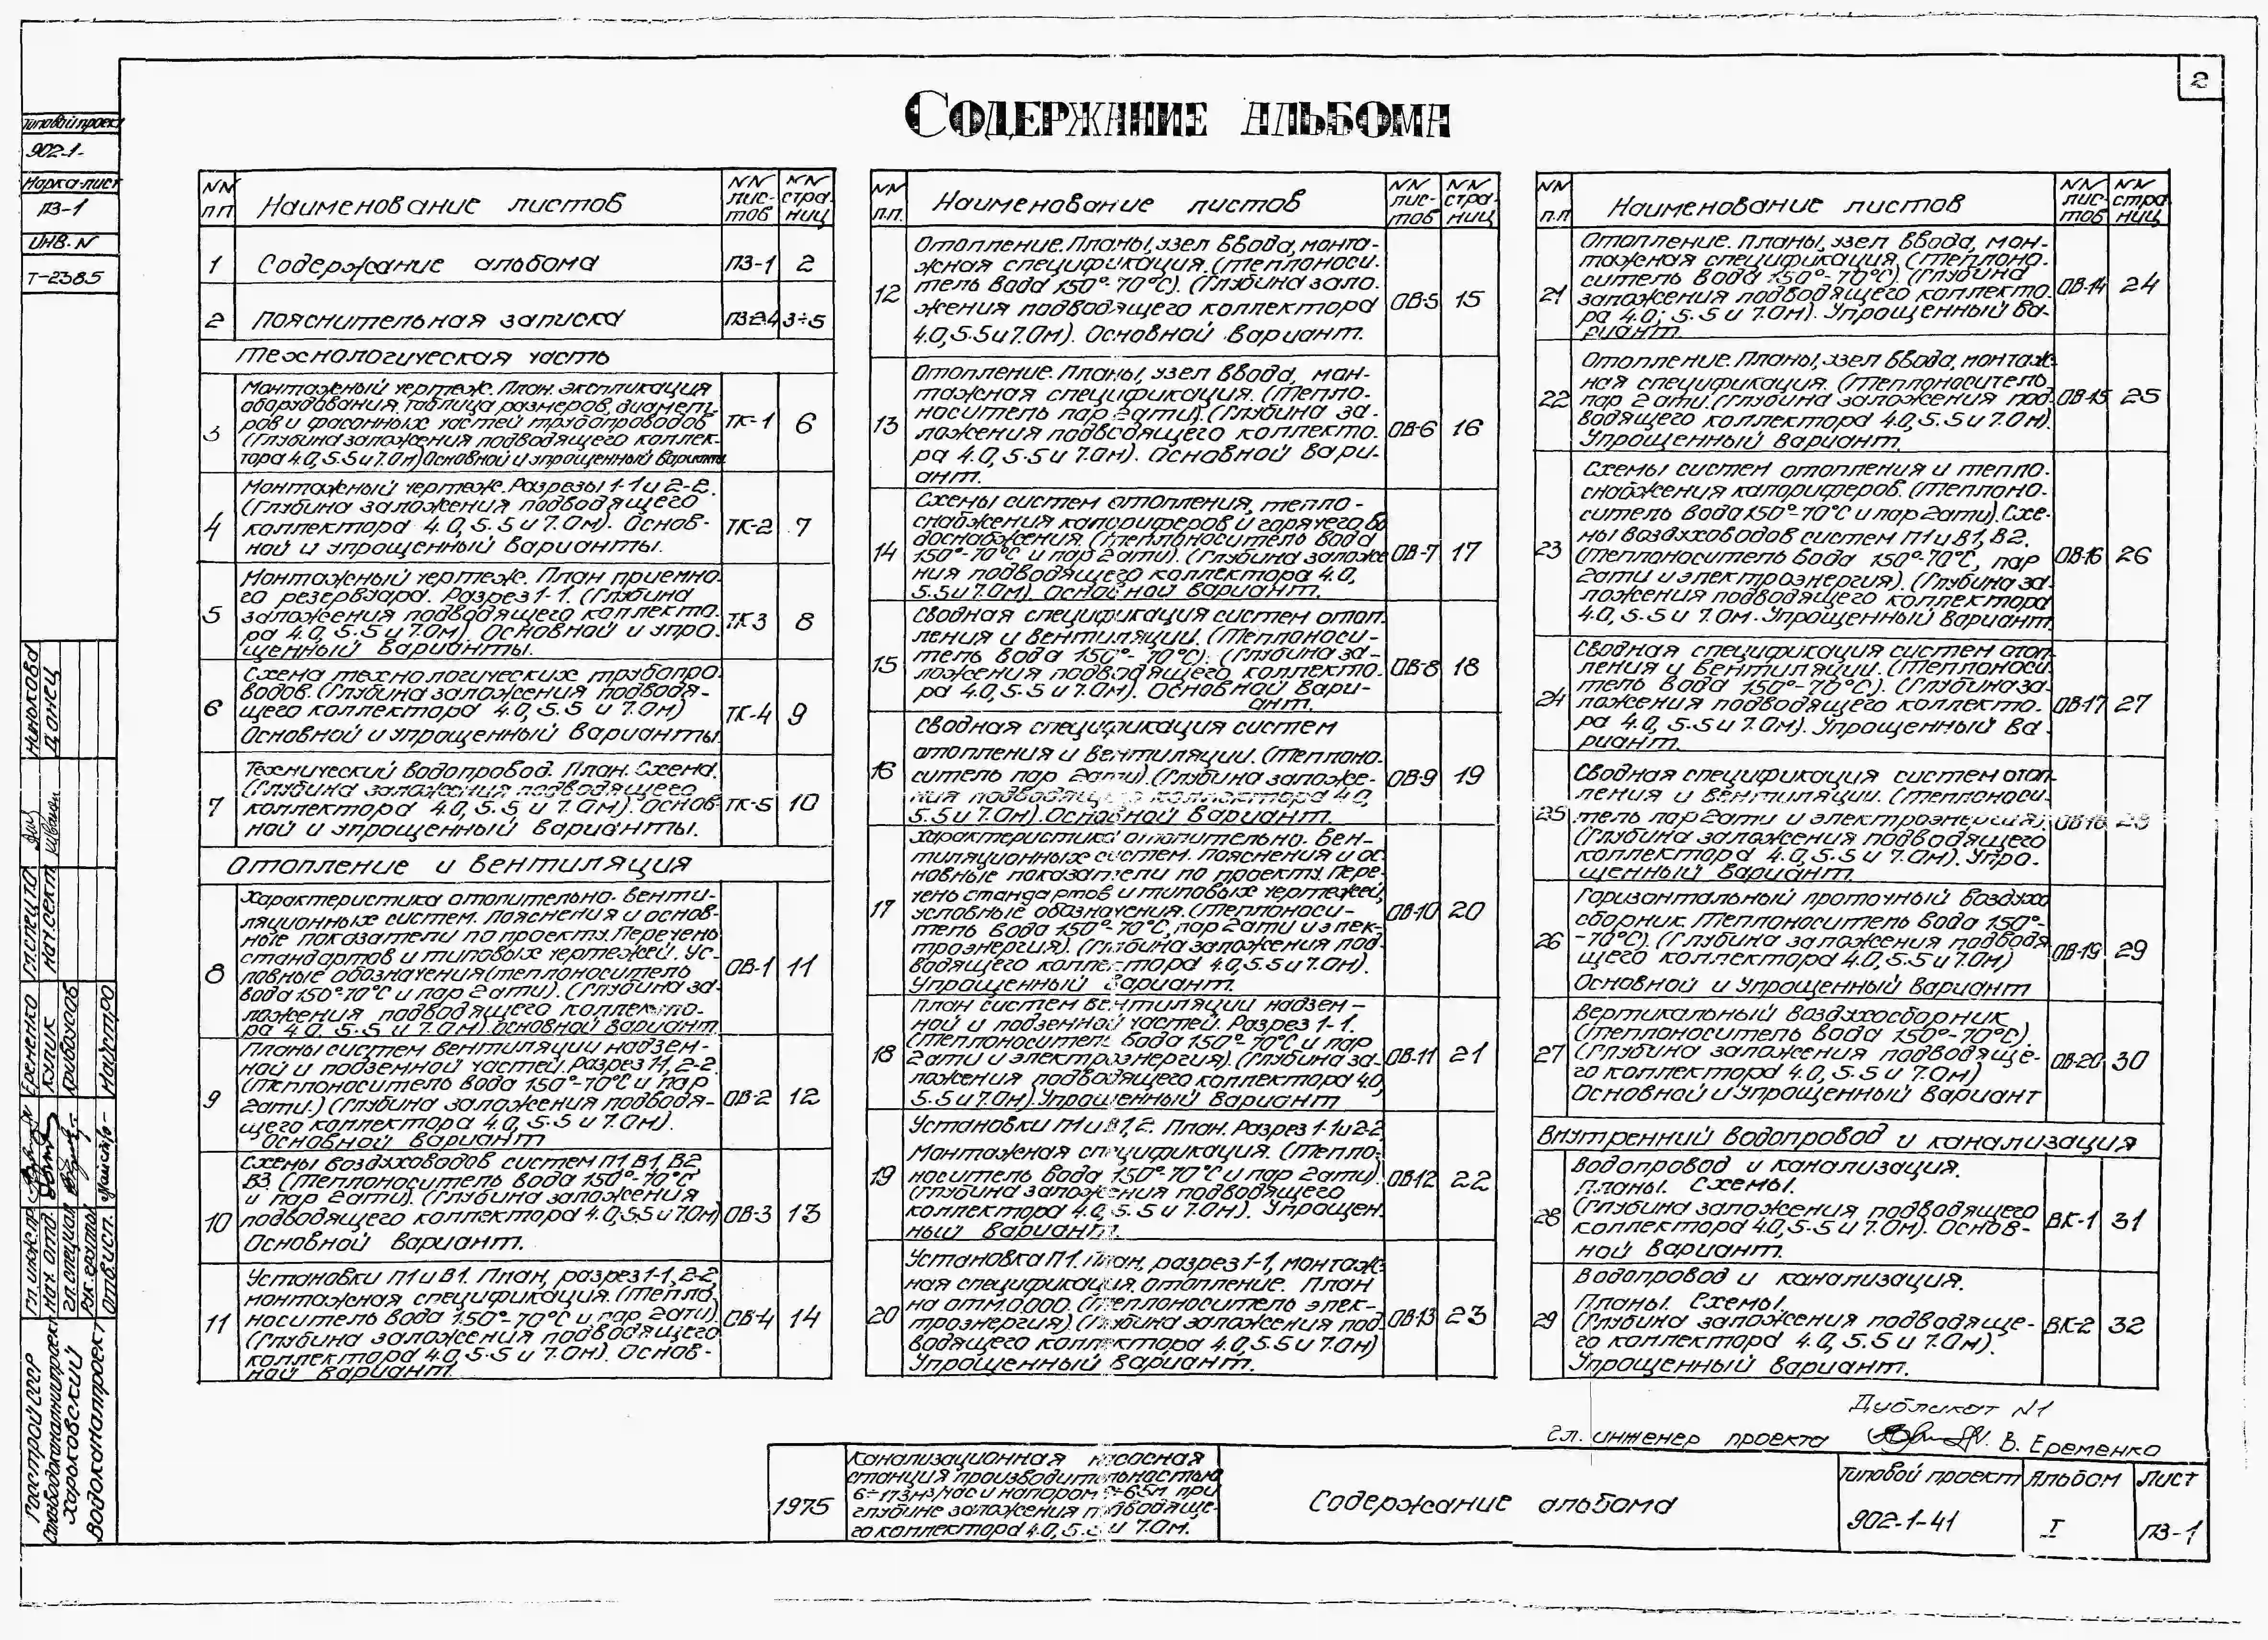 2
Содержание альбома
Типовой проект
902-1-
Марка-лист
ПЗ-1
ИНВ. N
Т-2385
NN п.п
Наименование листов
NN лис-тов
NN стра-ниц
1
Содержание альбома
ПЗ-1
2
2
Пояснительная записка
ПЗ2-4
3÷5
Технологическая часть
3
Монтажный чертеж. План. Экспликация
оборудования, таблица размеров, диамет-
ров и фасонных частей трубопроводов
(Глубина заложения подводящего коллек-
тора 4.0, 5.5 и 7.0м) Основной и упрощенный варианты
ТК-1
6
4
Монтажный чертеж. Разрезы 1-1 и 2-2.
(Глубина заложения подводящего
коллектора 4.0, 5.5 и 7.0м). Основ-
ной и упрощенный варианты.
ТК-2
7
5
Монтажный чертеж. План приемно-
го резервуара. Разрез 1-1. (Глубина
заложения подводящего коллекто-
ра 4.0, 5.5 и 7.0м). Основной и упро-
щенный варианты.
ТК-3
8
6
Схема технологических трубопро-
водов. (Глубина заложения подводя-
щего коллектора 4.0, 5.5 и 7.0м)
Основной и упрощенный варианты.
ТК-4
9
7
Технический водопровод. План. Схема.
(Глубина заложения подводящего
коллектора 4.0, 5.5 и 7.0м). Основ-
ной и упрощенный варианты.
ТК-5
10
Отопление и вентиляция
8
Характеристика отопительно-венти-
ляционных систем. Пояснения и основ-
ные показатели по проекту. Перечень
стандартов и типовых чертежей. Ус-
ловные обозначения (теплоноситель
вода 150°-70°С и пар 2ати). (Глубина за-
ложения подводящего коллекто-
ра 4.0, 5.5 и 7.0м). Основной вариант.
ОВ-1
11
9
Планы систем вентиляции надзем-
ной и подземной частей. Разрез 1-1, 2-2
(Теплоноситель вода 150°-70°С и пар
2ати.) (Глубина заложения подводя-
щего коллектора 4.0, 5.5 и 7.0м).
Основной вариант
ОВ-2
12
10
Схемы воздуховодов систем П1, В1, В2
В3 (Теплоноситель вода 150°-70°С
и пар 2ати). (Глубина заложения
подводящего коллектора 4.0, 5.5 и 7.0м)
Основной вариант.
ОВ-3
13
11
Установки П1 и В1. План, разрез 1-1, 2-2,
монтажная спецификация. (Тепло-
носитель вода 150°-70°С и пар 2ати).
(Глубина заложения подводящего
коллектора 4.0, 5.5 и 7.0м). Основ-
ной вариант.
ОВ-4
14
NN п.п.
Наименование листов
NN лис-тов
NN стра-ниц
12
Отопление. Планы, узел ввода, монта-
жная спецификация. (Теплоноси-
тель вода 150°-70°С). (Глубина зало-
жения подводящего коллектора
4.0, 5.5 и 7.0м). Основной вариант.
ОВ-5
15
13
Отопление. Планы, узел ввода, мон-
тажная спецификация. (Тепло-
носитель пар 2ати). (Глубина за-
ложения подводящего коллекто-
ра 4.0, 5.5 и 7.0м). Основной вари-
ант.
ОВ-6
16
14
Схемы систем отопления, тепло-
снабжения калориферов и горячего во
доснабжения. (Теплоноситель вода
150°-70°С и пар 2ати). (Глубина заложе
ния подводящего коллектора 4.0,
5.5 и 7.0м). Основной вариант.
ОВ-7
17
15
Сводная спецификация систем отоп-
ления и вентиляции. (Теплоноси-
тель вода 150°-70°С). (Глубина за-
ложения подводящего коллекто-
ра 4.0, 5.5 и 7.0м). Основной вари-
ант.
ОВ-8
18
16
Сводная спецификация систем
отопления и вентиляции. (Теплоно-
ситель пар 2ати). (Глубина заложе-
ния подводящего коллектора 4.0,
5.5 и 7.0м). Основной вариант.
ОВ-9
19
17
Характеристика отопительно-вен-
тиляционных систем. Пояснения и ос-
новные показатели по проекту. Пере-
чень стандартов и типовых чертежей,
условные обозначения. (Теплоноси-
тель вода 150°-70°С, пар 2ати и элек-
троэнергия). (Глубина заложения под-
водящего коллектора 4.0, 5.5 и 7.0м).
Упрощенный вариант.
ОВ-10
20
18
План систем вентиляции надзем-
ной и подземной частей. Разрез 1-1.
(Теплоноситель вода 150°-70°С и пар
2ати и электроэнергия). (Глубина за-
ложения подводящего коллектора 4.0,
5.5 и 7.0м). Упрощенный вариант
ОВ-11
21
19
Установки П1 и В1, 2. План. Разрез 1-1 и 2-2
Монтажная спецификация. (Тепло-
носитель вода 150°-70°С и пар 2ати).
(Глубина заложения подводящего
коллектора 4.0, 5.5 и 7.0м). Упрощен-
ный вариант.
ОВ-12
22
20
Установка П1. План, разрез 1-1, монтаж-
ная спецификация. Отопление. План
на отм. 0.000. (Теплоноситель элек-
троэнергия). (Глубина заложения под-
водящего коллектора 4.0, 5.5 и 7.0м)
Упрощенный вариант.
ОВ-13
23
NN п.п
Наименование листов
NN лис-тов
NN стра-ниц
21
Отопление. Планы, узел ввода, мон-
тажная спецификация, (Теплоно-
ситель вода 150°-70°С). (Глубина
заложения подводящего коллекто-
ра 4.0; 5.5 и 7.0м). Упрощенный ва-
риант.
ОВ-14
24
22
Отопление. Планы, узел ввода, монтаж-
ная спецификация. (Теплоноситель
пар 2ати. (Глубина заложения под-
водящего коллектора 4.0, 5.5 и 7.0м).
Упрощенный вариант.
ОВ-15
25
23
Схемы систем отопления и тепло-
снабжения калориферов. (Теплоно-
ситель вода 150°-70°С и пар 2ати). Схе-
мы воздуховодов систем П1 и В1, В2.
(Теплоноситель вода 150°-70°С, пар
2ати и электроэнергия). (Глубина за-
ложения подводящего коллектора
4.0, 5.5 и 7.0м. Упрощенный вариант.
ОВ-16
26
24
Сводная спецификация систем отоп-
ления и вентиляции. (Теплоноси-
тель вода 150°-70°С). (Глубина за-
ложения подводящего коллекто-
ра 4.0, 5.5 и 7.0м). Упрощенный ва-
риант.
ОВ-17
27
25
Сводная спецификация систем отоп-
ления и вентиляции. (Теплоноси-
тель пар 2ати и электроэнергия).
(Глубина заложения подводящего
коллектора 4.0, 5.5 и 7.0м). Упро-
щенный вариант.
ОВ-18
28
26
Горизонтальный проточный воздухо
сборник. Теплоноситель вода 150°-
-70°С). (Глубина заложения подводя
щего коллектора 4.0, 5.5 и 7.0м)
Основной и Упрощенный вариант
ОВ-19
29
27
Вертикальный воздухосборник
(Теплоноситель вода 150°-70°С).
(Глубина заложения подводяще-
го коллектора 4.0, 5.5 и 7.0м)
Основной и Упрощенный вариант
ОВ-20
30
Внутренний водопровод и канализация
28
Водопровод и канализация.
Планы. Схемы.
(Глубина заложения подводящего
коллектора 4.0, 5.5 и 7.0м). Основ-
ной вариант.
ВК-1
31
29
Водопровод и канализация.
Планы. Схемы.
(Глубина заложения подводяще-
го коллектора 4.0, 5.5 и 7.0м).
Упрощенный вариант.
ВК-2
32
Дубликат N1
Гл. инженер проекта В. Еременко
1975
Канализационная насосная
станция производительностью
6÷173м³/час и напором 9÷65м при
глубине заложения подводяще-
го коллектора 4.0, 5.5 и 7.0м.
Содержание альбома
Типовой проект
902-1-41
Альбом
I
Лист
ПЗ-1
Госстрой СССР
Союзводоканалниипроект
Харьковский
Водоканалпроект
Гл. инж. пр
Нач. отд.
Гл. специал
Рук. группы
Отв. исп.
Еременко
Кулик
Майстро
Гл. спец ТО
Нач. сект
Донец